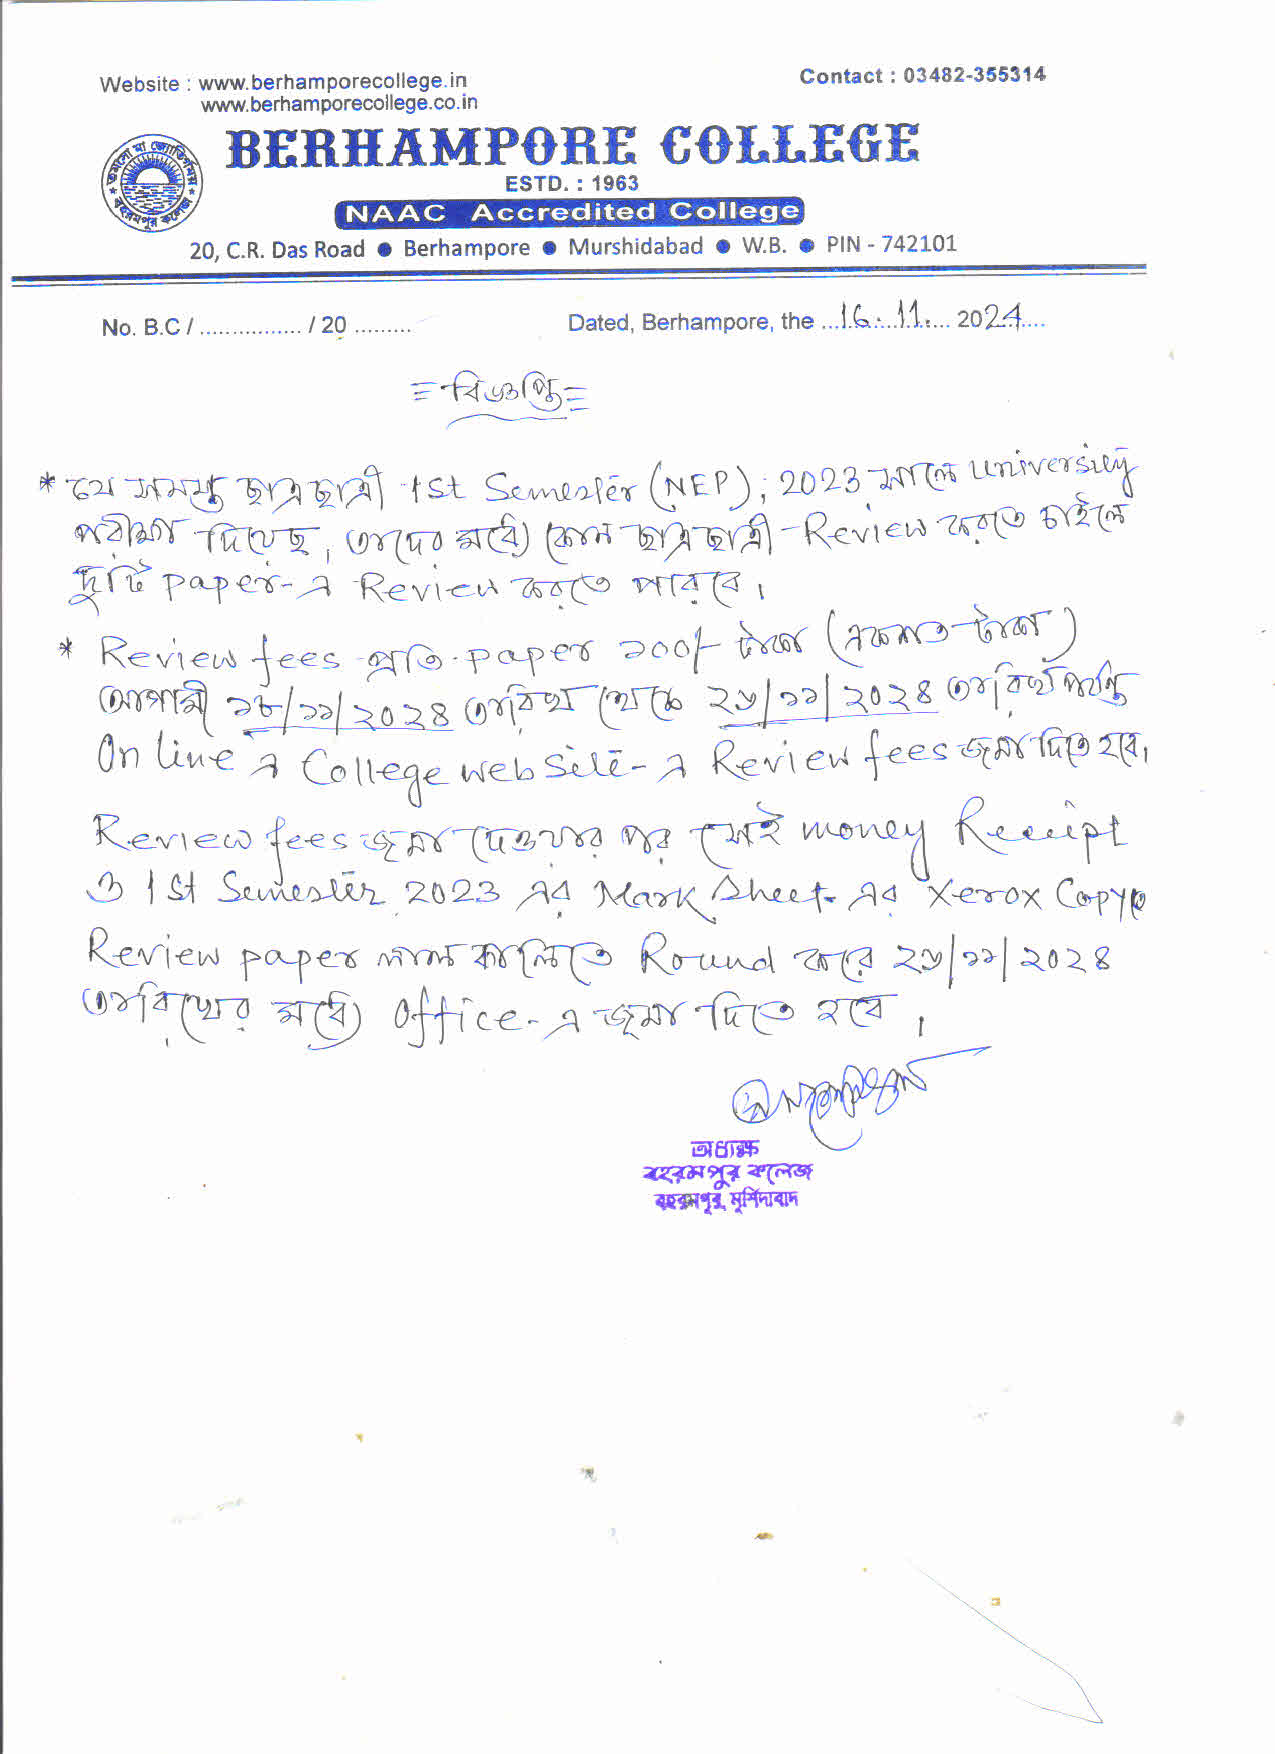 Website : www.berhamporecollege.in
www.berhamporecollege.co.in
Contact : 03482-355314
তমসো মা জ্যোতির্গময়
বহরমপুর কলেজ
BERHAMPORE COLLEGE
ESTD. : 1963
NAAC Accredited College
20, C.R. Das Road ● Berhampore ● Murshidabad ● W.B. ● PIN - 742101
No. B.C / ................ / 20 .........
Dated, Berhampore, the ...16.11.... 2024....
=বিজ্ঞপ্তি=
* যে সমস্ত ছাত্রছাত্রী 1st Semester (NEP); 2023 সালে University
পরীক্ষা দিয়েছে, তাদের মধ্যে কোন ছাত্রছাত্রী Review করতে চাইলে
দুটি paper-এ Review করতে পারবে।
* Review fees প্রতি paper ১০০/- টাকা (একশত টাকা)
আগামী ১৮/১১/২০২৪ তারিখ থেকে ২৬/১১/২০২৪ তারিখ পর্যন্ত
On line এ College web Site-এ Review fees জমা দিতে হবে।
Review fees জমা দেওয়ার পর সেই money Receipt
ও 1st Semester 2023 এর Mark Sheet-এর Xerox Copy
Review paper লাল কালিতে Round করে ২৬/১১/২০২৪
তারিখের মধ্যে Office-এ জমা দিতে হবে।
অধ্যক্ষ
বহরমপুর কলেজ
বহরমপুর, মুর্শিদাবাদ